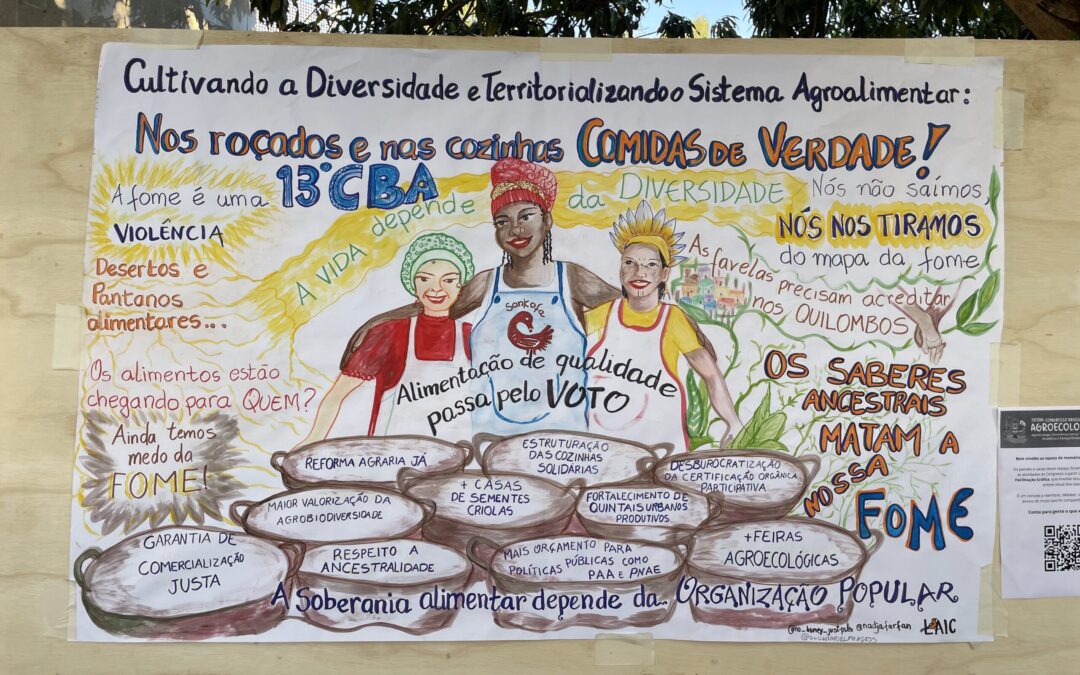 Cultivando a Diversidade e Territorializando o Sistema Agroalimentar:
Nos roçados e nas cozinhas COMIDAS DE VERDADE!
13º CBA
A fome é uma
VIOLÊNCIA
A VIDA depende da DIVERSIDADE
Nós não saímos,
NÓS NOS TIRAMOS
do mapa da fome
Desertos e
Pantanos
alimentares...
As favelas precisam acreditar
nos QUILOMBOS
Sankofa
Os alimentos estão
chegando para QUEM?
Alimentação de qualidade
passa pelo VOTO
OS SABERES
ANCESTRAIS
MATAM A
NOSSA
FOME
Ainda temos
medo da
FOME!
REFORMA AGRARIA JÁ
ESTRUTURAÇÃO
DAS COZINHAS
SOLIDÁRIAS
DESBUROCRATIZAÇÃO
DA CERTIFICAÇÃO ORGÂNICA
PARTICIPATIVA
MAIOR VALORIZAÇÃO DA
AGROBIODIVERSIDADE
+ CASAS
DE SEMENTES
CRIOLAS
FORTALECIMENTO DE
QUINTAIS URBANOS
PRODUTIVOS
GARANTIA DE
COMERCIALIZAÇÃO
JUSTA
RESPEITO A
ANCESTRALIDADE
MAIS ORÇAMENTO PARA
POLÍTICAS PÚBLICAS COMO
PAA e PNAE
+ FEIRAS
AGROECOLÓGICAS
A Soberania alimentar depende da ORGANIZAÇÃO POPULAR
@nadjafarfan
LAIC
AGROECOLO